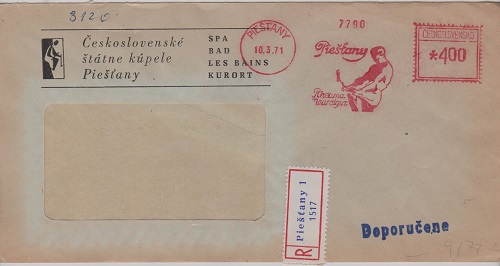 3120
Československé
štátne kúpele
Piešťany
SPA
BAD
LES BAINS
KURORT
PIEŠŤANY
10.3.71
7790
Piešťany
Rheuma
Neuralgia
ČESKOSLOVENSKO
*400
R
Piešťany 1
1517
Doporučene